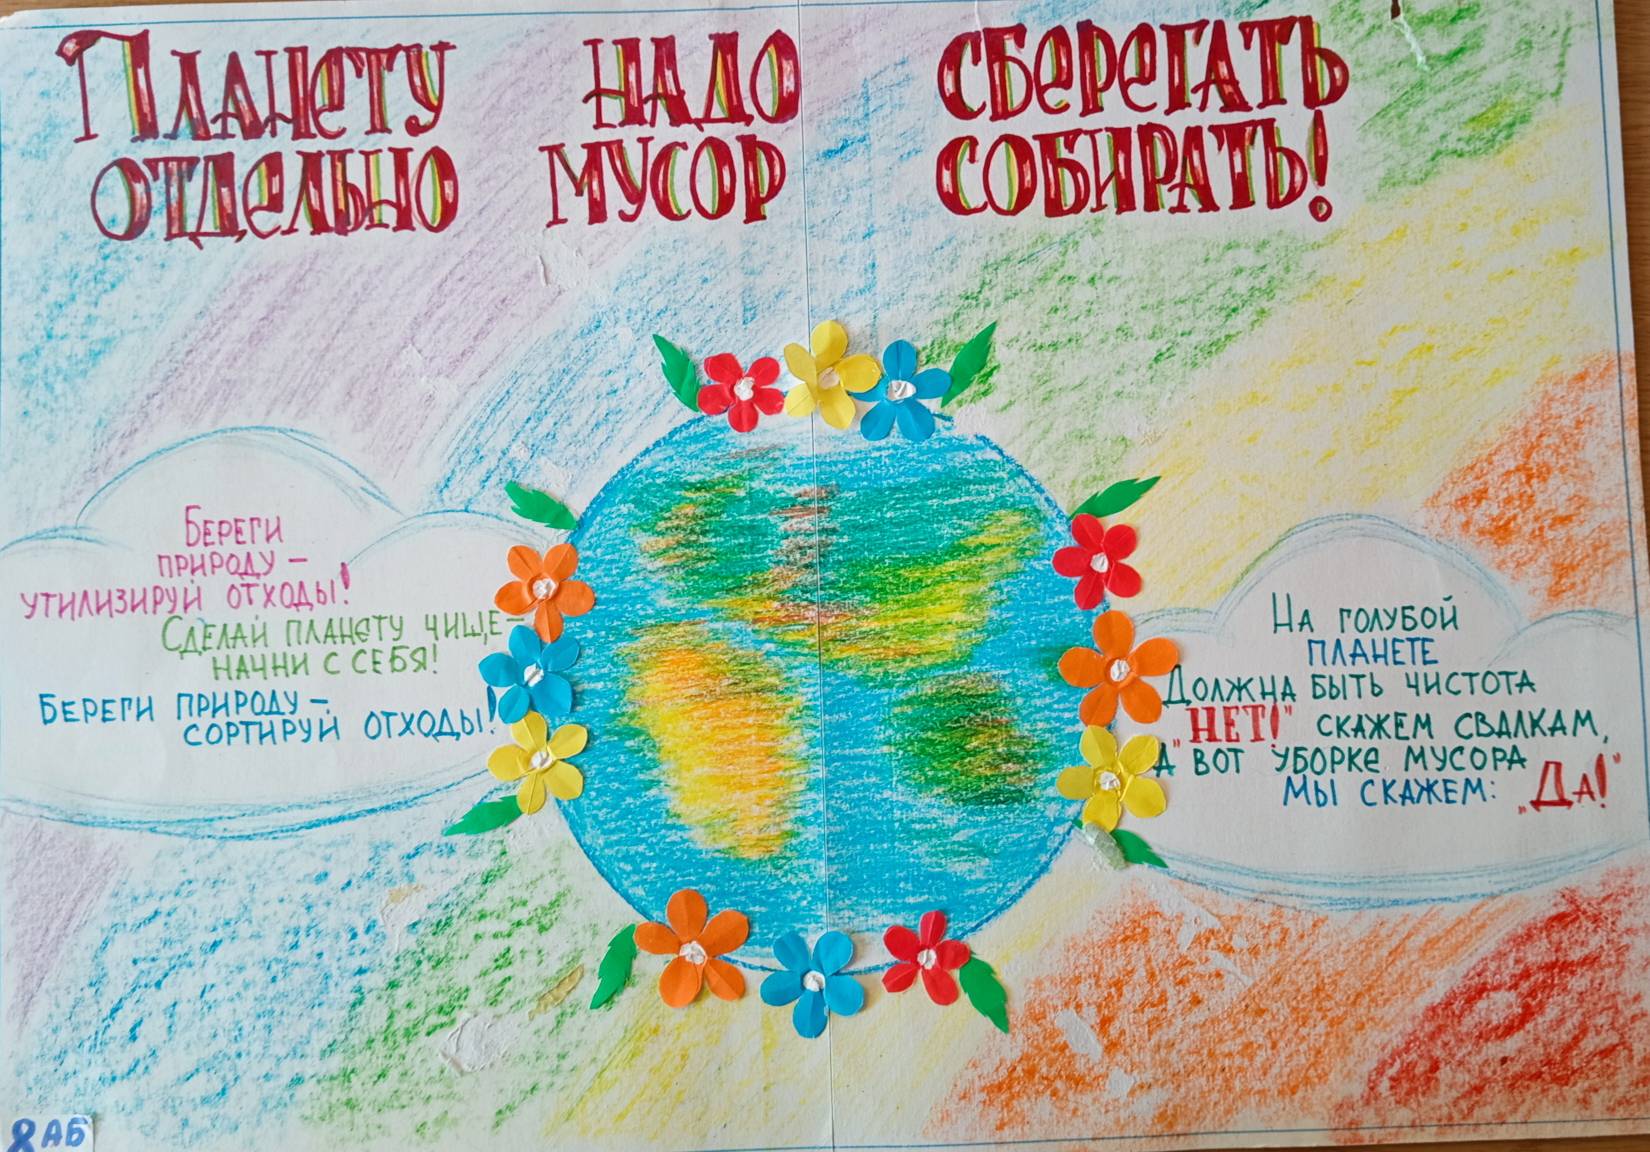 Планету надо сберегать
отдельно мусор собирать!
Береги
природу –
утилизируй отходы!
Сделай планету чище –
начни с себя!
Береги природу –
сортируй отходы!
На голубой
планете
Должна быть чистота
"НЕТ!" скажем свалкам,
А вот уборке мусора
мы скажем: „Да!"
8 АБ